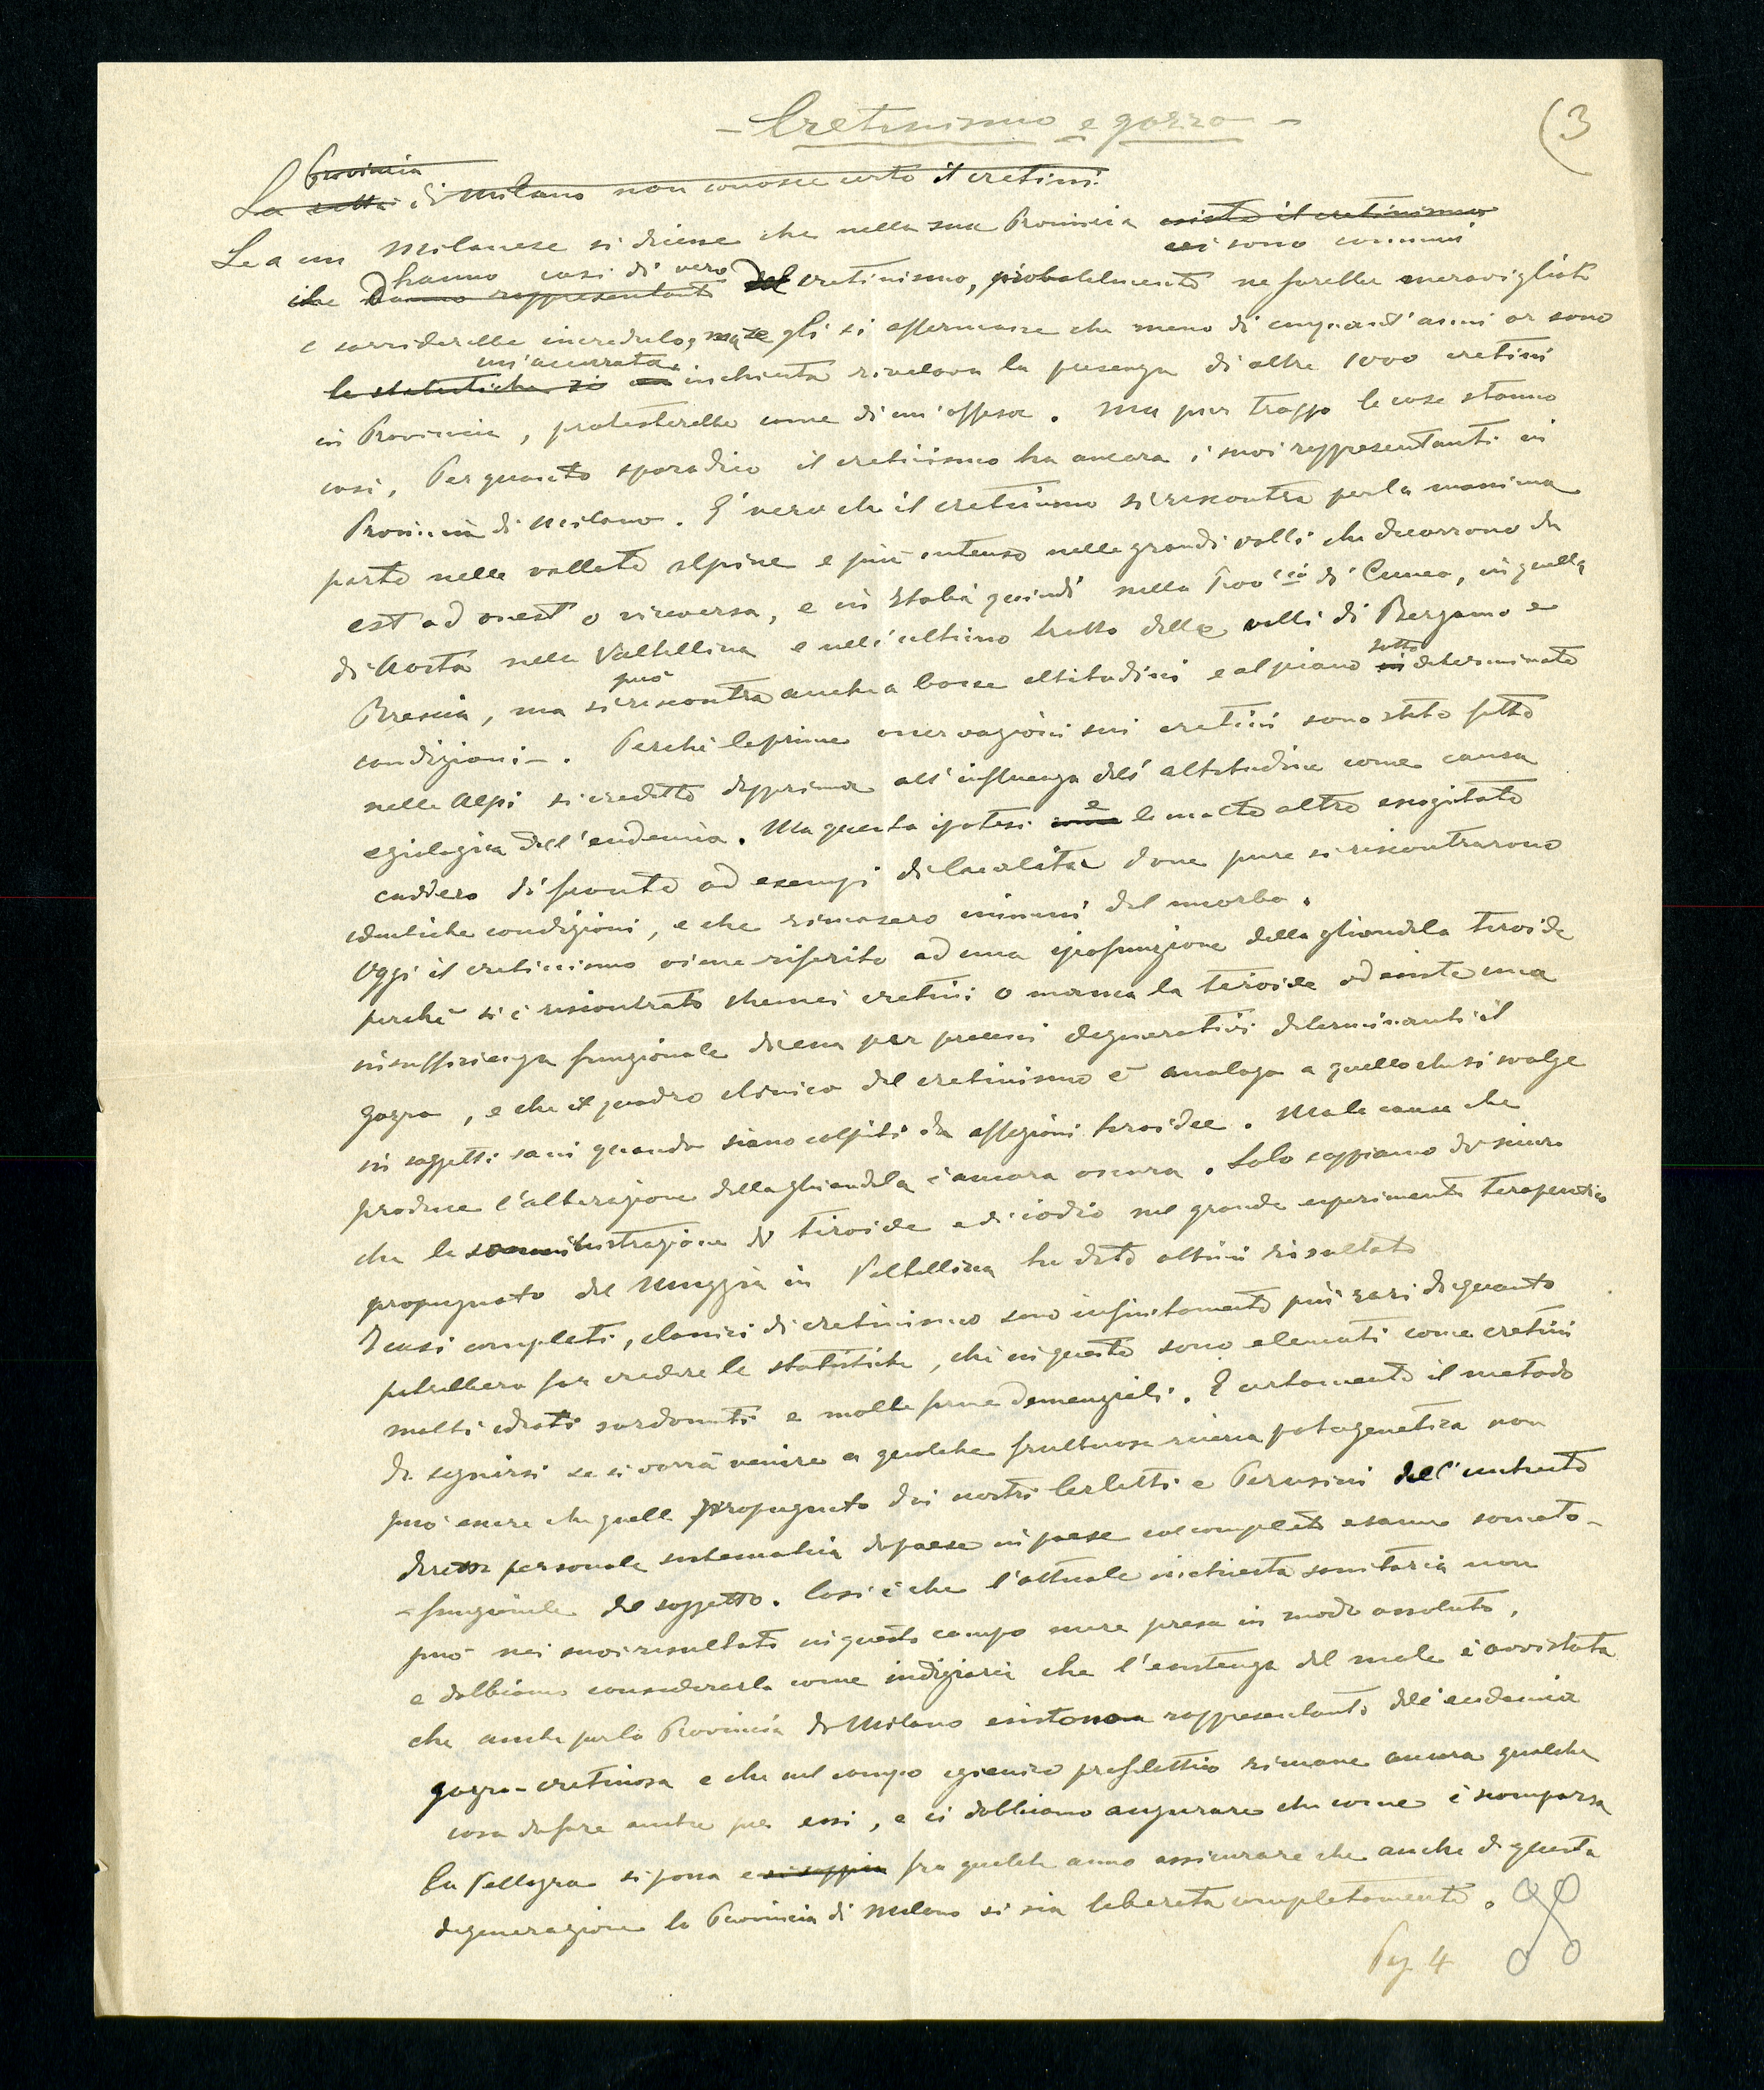 - Cretinismo e gozzo -
(3
Provincia
La città di Milano non conosce certo il cretini
Se a un Milanese si dicesse che nella sua Provincia esiste il cretinismo
ci sono comuni
che hanno casi di vero cretinismo, probabilmente ne sarebbe meravigliato
e sorriderebbe incredulo, ma se gli si affermasse che meno di cinquant'anni or sono
un'accurata
le statistiche si inchiesta rivelava la presenza di oltre 1000 cretini
in Provincia, protesterebbe come di un'offesa. Ma pur troppo le cose stanno
così. Per quanto sporadico il cretinismo ha ancora i suoi rappresentanti in
Provincia di Milano. È vero che il cretinismo si riscontra per la massima
parte nelle vallate alpine e più intenso nelle grandi valli che decorrono da
est ad ovest o viceversa, e in Italia quindi nella Prov.cia di Cuneo, in quella
di Aosta nella Valtellina e nell'ultimo tratto delle valli di Bergamo e
può sotto
Brescia, ma si riscontra anche a basse altitudini e al piano in determinate
condizioni -. Perchè le prime osservazioni sui cretini sono state fatte
nelle Alpi si credette dapprima all'influenza dell'altitudine come causa
eziologica dell'endemia. Ma questa ipotesi e le molte altre escogitate
caddero di fronte ad esempi di località dove pure si riscontrarono
identiche condizioni, e che rimasero immuni dal morbo.
Oggi il cretinismo viene riferito ad una ipofunzione della ghiandola tiroide
perchè si è riscontrato che nei cretini o manca la tiroide od esiste una
insufficienza funzionale di essa per processi degenerativi determinanti il
gozzo, e che il quadro clinico del cretinismo è analogo a quello che si svolge
in soggetti sani quando siano colpiti da affezioni tiroidee. Ma la causa che
produce l'alterazione della ghiandola è ancora oscura. Solo sappiamo di sicuro
che la somministrazione di tiroide e di iodio nel grande esperimento terapeutico
propugnato dal Muggia in Valtellina ha dato ottimi risultati
I casi completi, classici di cretinismo sono infinitamente più rari di quanto
potrebbero far credere le statistiche, chè in queste sono elencati come cretini
molti idioti sordomuti e molte forme demenziali. E certamente il metodo
da seguirsi se si vorrà venire a qualche fruttuosa ricerca patogenetica non
può essere che quello propugnato dai nostri Cerletti e Perusini dell'inchiesta
diretta personale sistematica di paese in paese col completo esame somato-
- funzionale del soggetto. Così è che l'attuale inchiesta sanitaria non
può nei suoi risultati in questo campo essere presa in modo assoluto,
e dobbiamo considerarla come indiziaria che l'esistenza del male è avvistata
che anche per la Provincia di Milano esistono rappresentanti dell'endemia
gozzo-cretinosa e che nel campo igienico profilattico rimane ancora qualche
cosa da fare anche per essi, e ci dobbiamo augurare che come è scomparsa
la Pellagra si possa e si sappia fra qualche anno assicurare che anche di questa
degenerazione la Provincia di Milano si sia liberata completamente.
Pag. 4